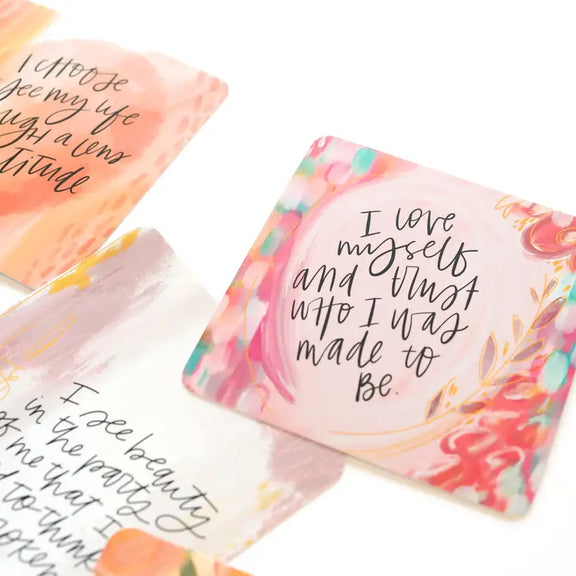 I choose
see my life
a lens
I love
myself
and trust
who I was
made to
be.
I see beauty
in the parts
of me that I
to think